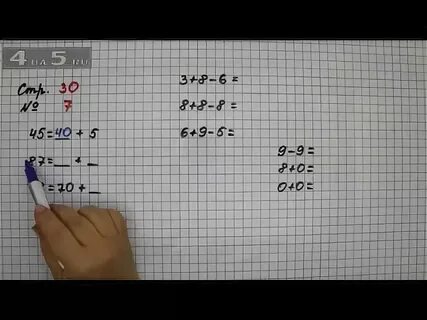 4 на 5 RU
Стр. 30
№ 7
45=40 + 5
87=__ + _
=70 + _
3+8-6=
8+8-8=
6+9-5=
9-9=
8+0=
0+0=